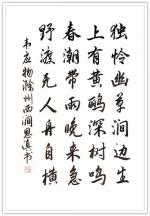 独怜幽草涧边生
上有黄鹂深树鸣
春潮带雨晚来急
野渡无人舟自横
韦应物滁州西涧恩书